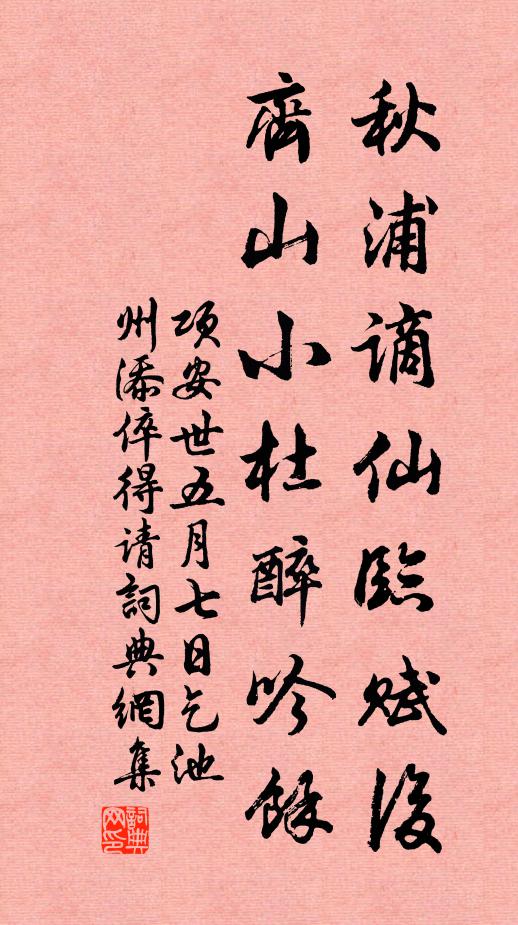 秋浦谪仙臨赋後
齊山小杜醉吟餘
项安世五月七日乞池
州添倅得请詞典網集
詞典网印